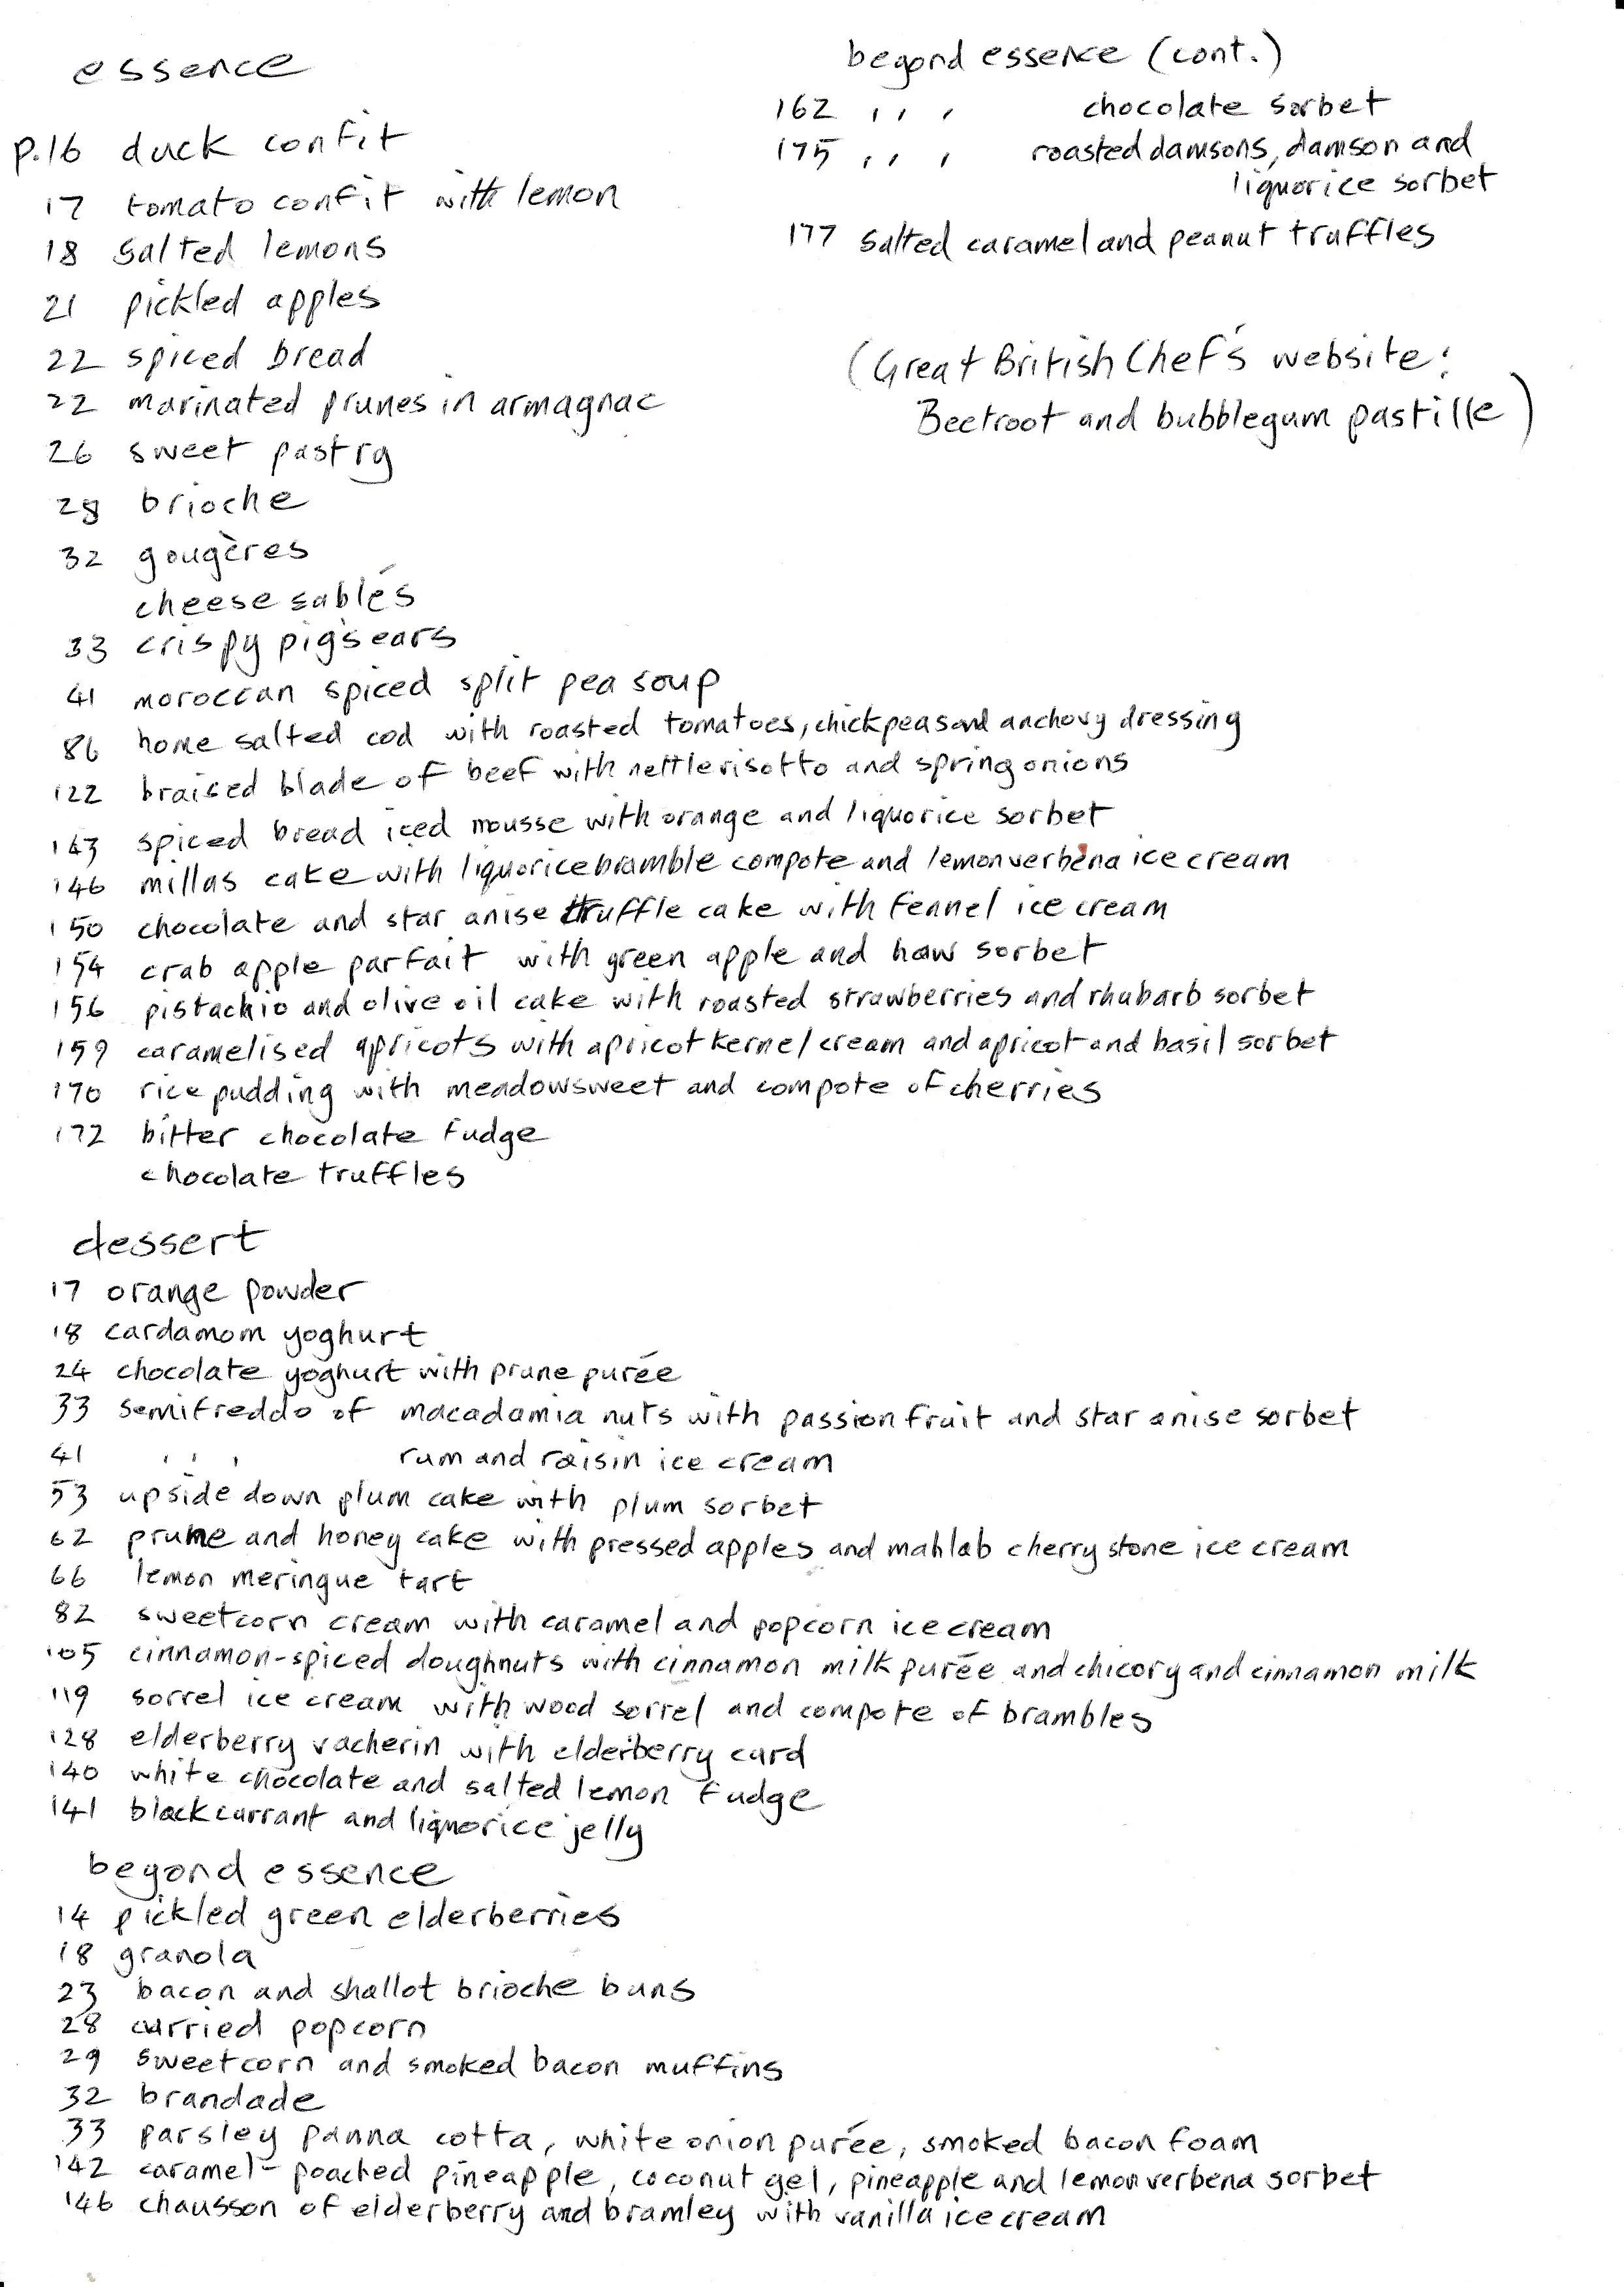 essence
p.16 duck confit
17 tomato confit with lemon
18 salted lemons
21 pickled apples
22 spiced bread
22 marinated prunes in armagnac
26 sweet pastry
28 brioche
32 gougères
cheese sablés
33 crispy pig's ears
41 moroccan spiced split pea soup
86 home salted cod with roasted tomatoes, chickpeas and anchovy dressing
122 braised blade of beef with nettle risotto and spring onions
143 spiced bread iced mousse with orange and liquorice sorbet
146 millas cake with liquorice bramble compote and lemon verbena ice cream
150 chocolate and star anise truffle cake with fennel ice cream
154 crab apple parfait with green apple and haw sorbet
156 pistachio and olive oil cake with roasted strawberries and rhubarb sorbet
159 caramelised apricots with apricot kernel cream and apricot and basil sorbet
170 rice pudding with meadowsweet and compote of cherries
172 bitter chocolate fudge
chocolate truffles
dessert
17 orange powder
18 cardamom yoghurt
24 chocolate yoghurt with prune purée
33 semifreddo of macadamia nuts with passion fruit and star anise sorbet
41 , , , rum and raisin ice cream
53 upside down plum cake with plum sorbet
62 prune and honey cake with pressed apples and mahlab cherry stone ice cream
66 lemon meringue tart
82 sweetcorn cream with caramel and popcorn ice cream
105 cinnamon-spiced doughnuts with cinnamon milk purée and chicory and cinnamon milk
119 sorrel ice cream with wood sorrel and compote of brambles
128 elderberry vacherin with elderberry curd
140 white chocolate and salted lemon fudge
141 blackcurrant and liquorice jelly
beyond essence
14 pickled green elderberries
18 granola
23 bacon and shallot brioche buns
28 curried popcorn
29 sweetcorn and smoked bacon muffins
32 brandade
33 parsley panna cotta, white onion purée, smoked bacon foam
142 caramel-poached pineapple, coconut gel, pineapple and lemon verbena sorbet
146 chausson of elderberry and bramley with vanilla ice cream
beyond essence (cont.)
162 , , , chocolate sorbet
175 , , , roasted damsons, damson and
liquorice sorbet
177 salted caramel and peanut truffles
(Great British Chef's website:
Beetroot and bubblegum pastille)